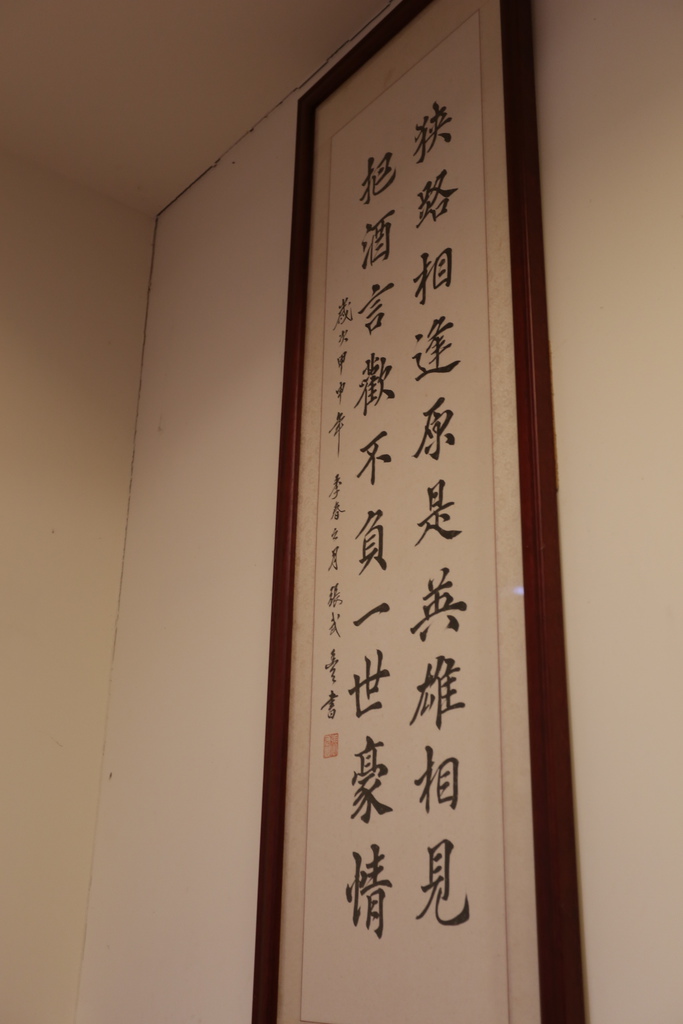 狹路相逢原是英雄相見
把酒言歡不負一世豪情
歲次甲申年 季春之月 張武臺書